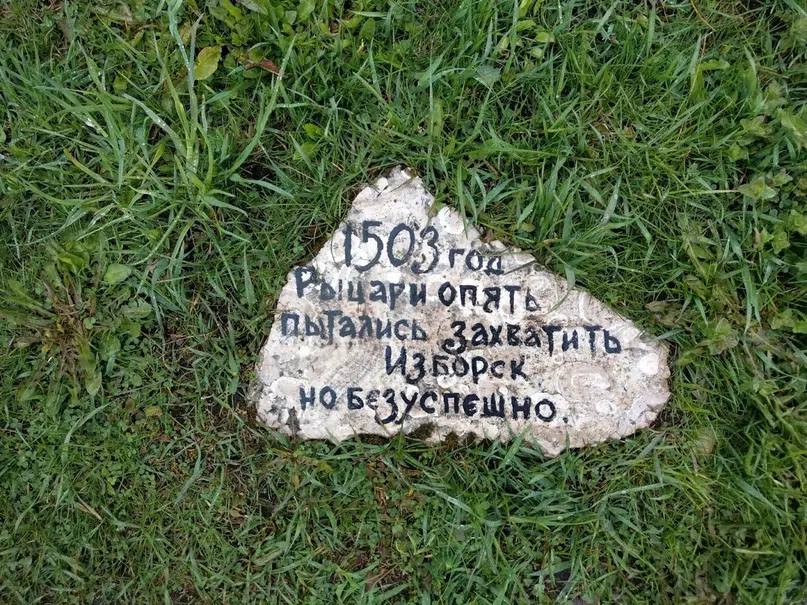 1503 год
Рыцари опять
пытались захватить
Изборск
но безуспешно.